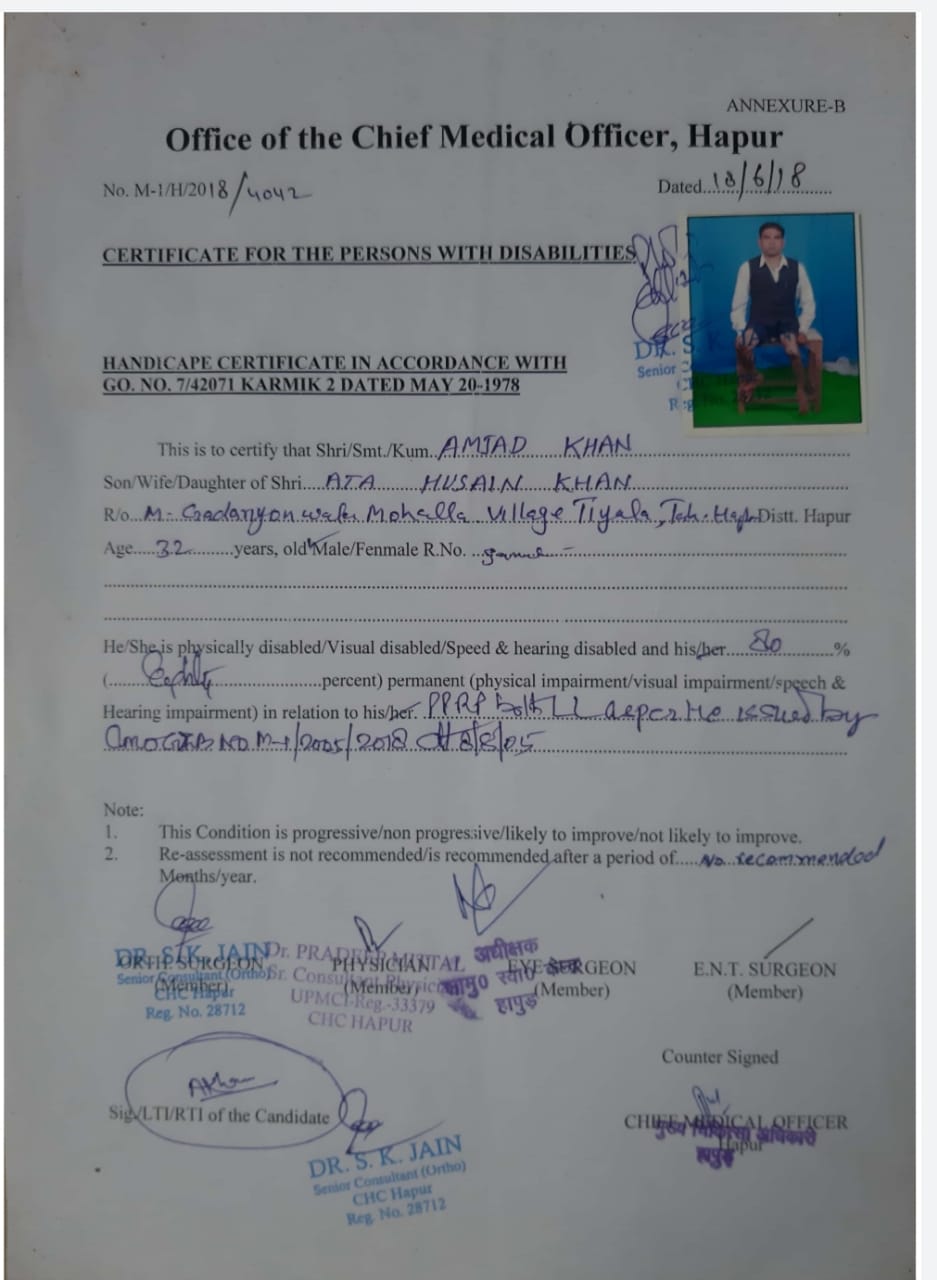 ANNEXURE-B
Office of the Chief Medical Officer, Hapur
No. M-1/H/2018/4042
Dated..18/6/18
CERTIFICATE FOR THE PERSONS WITH DISABILITIES
DR. S. K. JAIN
Senior
CHC Hapur
HANDICAPE CERTIFICATE IN ACCORDANCE WITH
GO. NO. 7/42071 KARMIK 2 DATED MAY 20-1978
This is to certify that Shri/Smt./Kum. AMJAD KHAN
Son/Wife/Daughter of Shri....ATA HUSAIN KHAN
R/o...M- Mohalla Village Tiyala, Teh. Hapur Distt. Hapur
Age.....32.........years, old Male/Fenmale R.No.
He/She is physically disabled/Visual disabled/Speed & hearing disabled and his/her....80..........%
(......Eighty................percent) permanent (physical impairment/visual impairment/speech &
Hearing impairment) in relation to his/her. PPRP both LL as per issued by
CMO GZB NO M-1/2005/2018
Note:
1. This Condition is progressive/non progressive/likely to improve/not likely to improve.
2. Re-assessment is not recommended/is recommended after a period of.....No recommended
Months/year.
DR. S. K. JAIN
Senior Consultant (Ortho)
CHC Hapur
Reg. No. 28712
ORTH. SURGEON
(Member)
Dr. PRADEEP MITTAL
Sr. Consultant Physician
UPMCI-Reg.-33379
CHC HAPUR
PHYSICIAN
(Member)
अधीक्षक
सामु0 स्वा0 केन्द्र
हापुड़
EYE SURGEON
(Member)
E.N.T. SURGEON
(Member)
Counter Signed
AKhan
Sig./LTI/RTI of the Candidate
CHIEF MEDICAL OFFICER
Hapur
मुख्य चिकित्सा अधिकारी
हापुड़
DR. S. K. JAIN
Senior Consultant (Ortho)
CHC Hapur
Reg. No. 28712